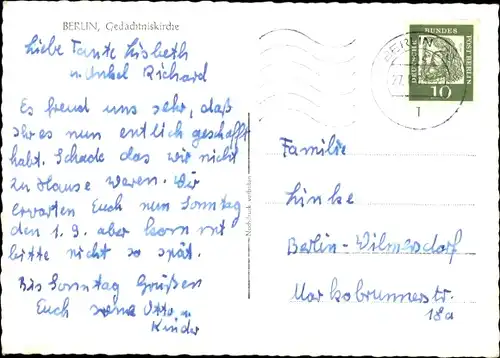 BERLIN, Gedächtniskirche
Liebe Tante Lisbeth
u. Onkel Richard
Es freud uns sehr, daß
Ihr es nun entlich geschafft
habt. Schade das wir nicht
zu Hause waren. Wir
erwarten Euch nun Sonntag
den 1. 9. aber kommt
bitte nicht so spät.
Bis Sonntag Grüßen
Euch Otto u.
Kinder
Nachdruck verboten
BERLIN
27.
1
DEUTSCHE BUNDESPOST BERLIN
10
Familie
Linke
Berlin-Wilmersdorf
Markobrunnerstr.
18a